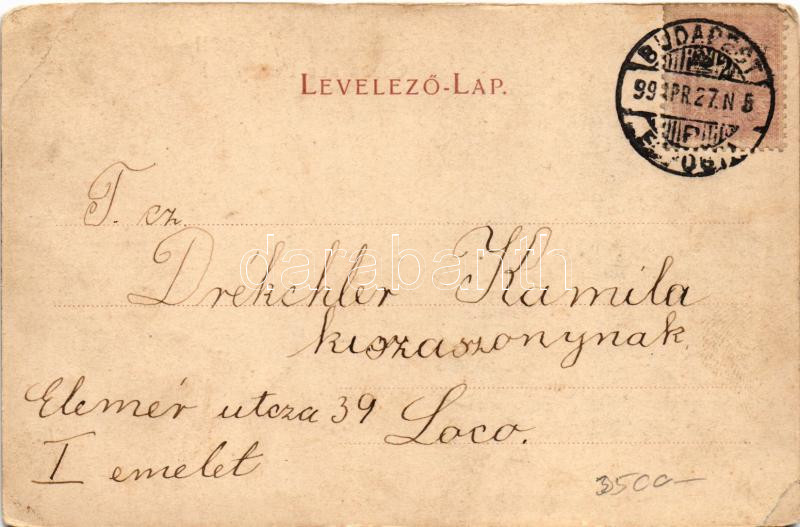 LEVELEZŐ-LAP.
BUDAPEST
99 APR. 27. N 5
T. cz.
Drekchler Kamila
kiszaszonynak
Elemér utcza 39
Loco.
I emelet
3500-
darabanth